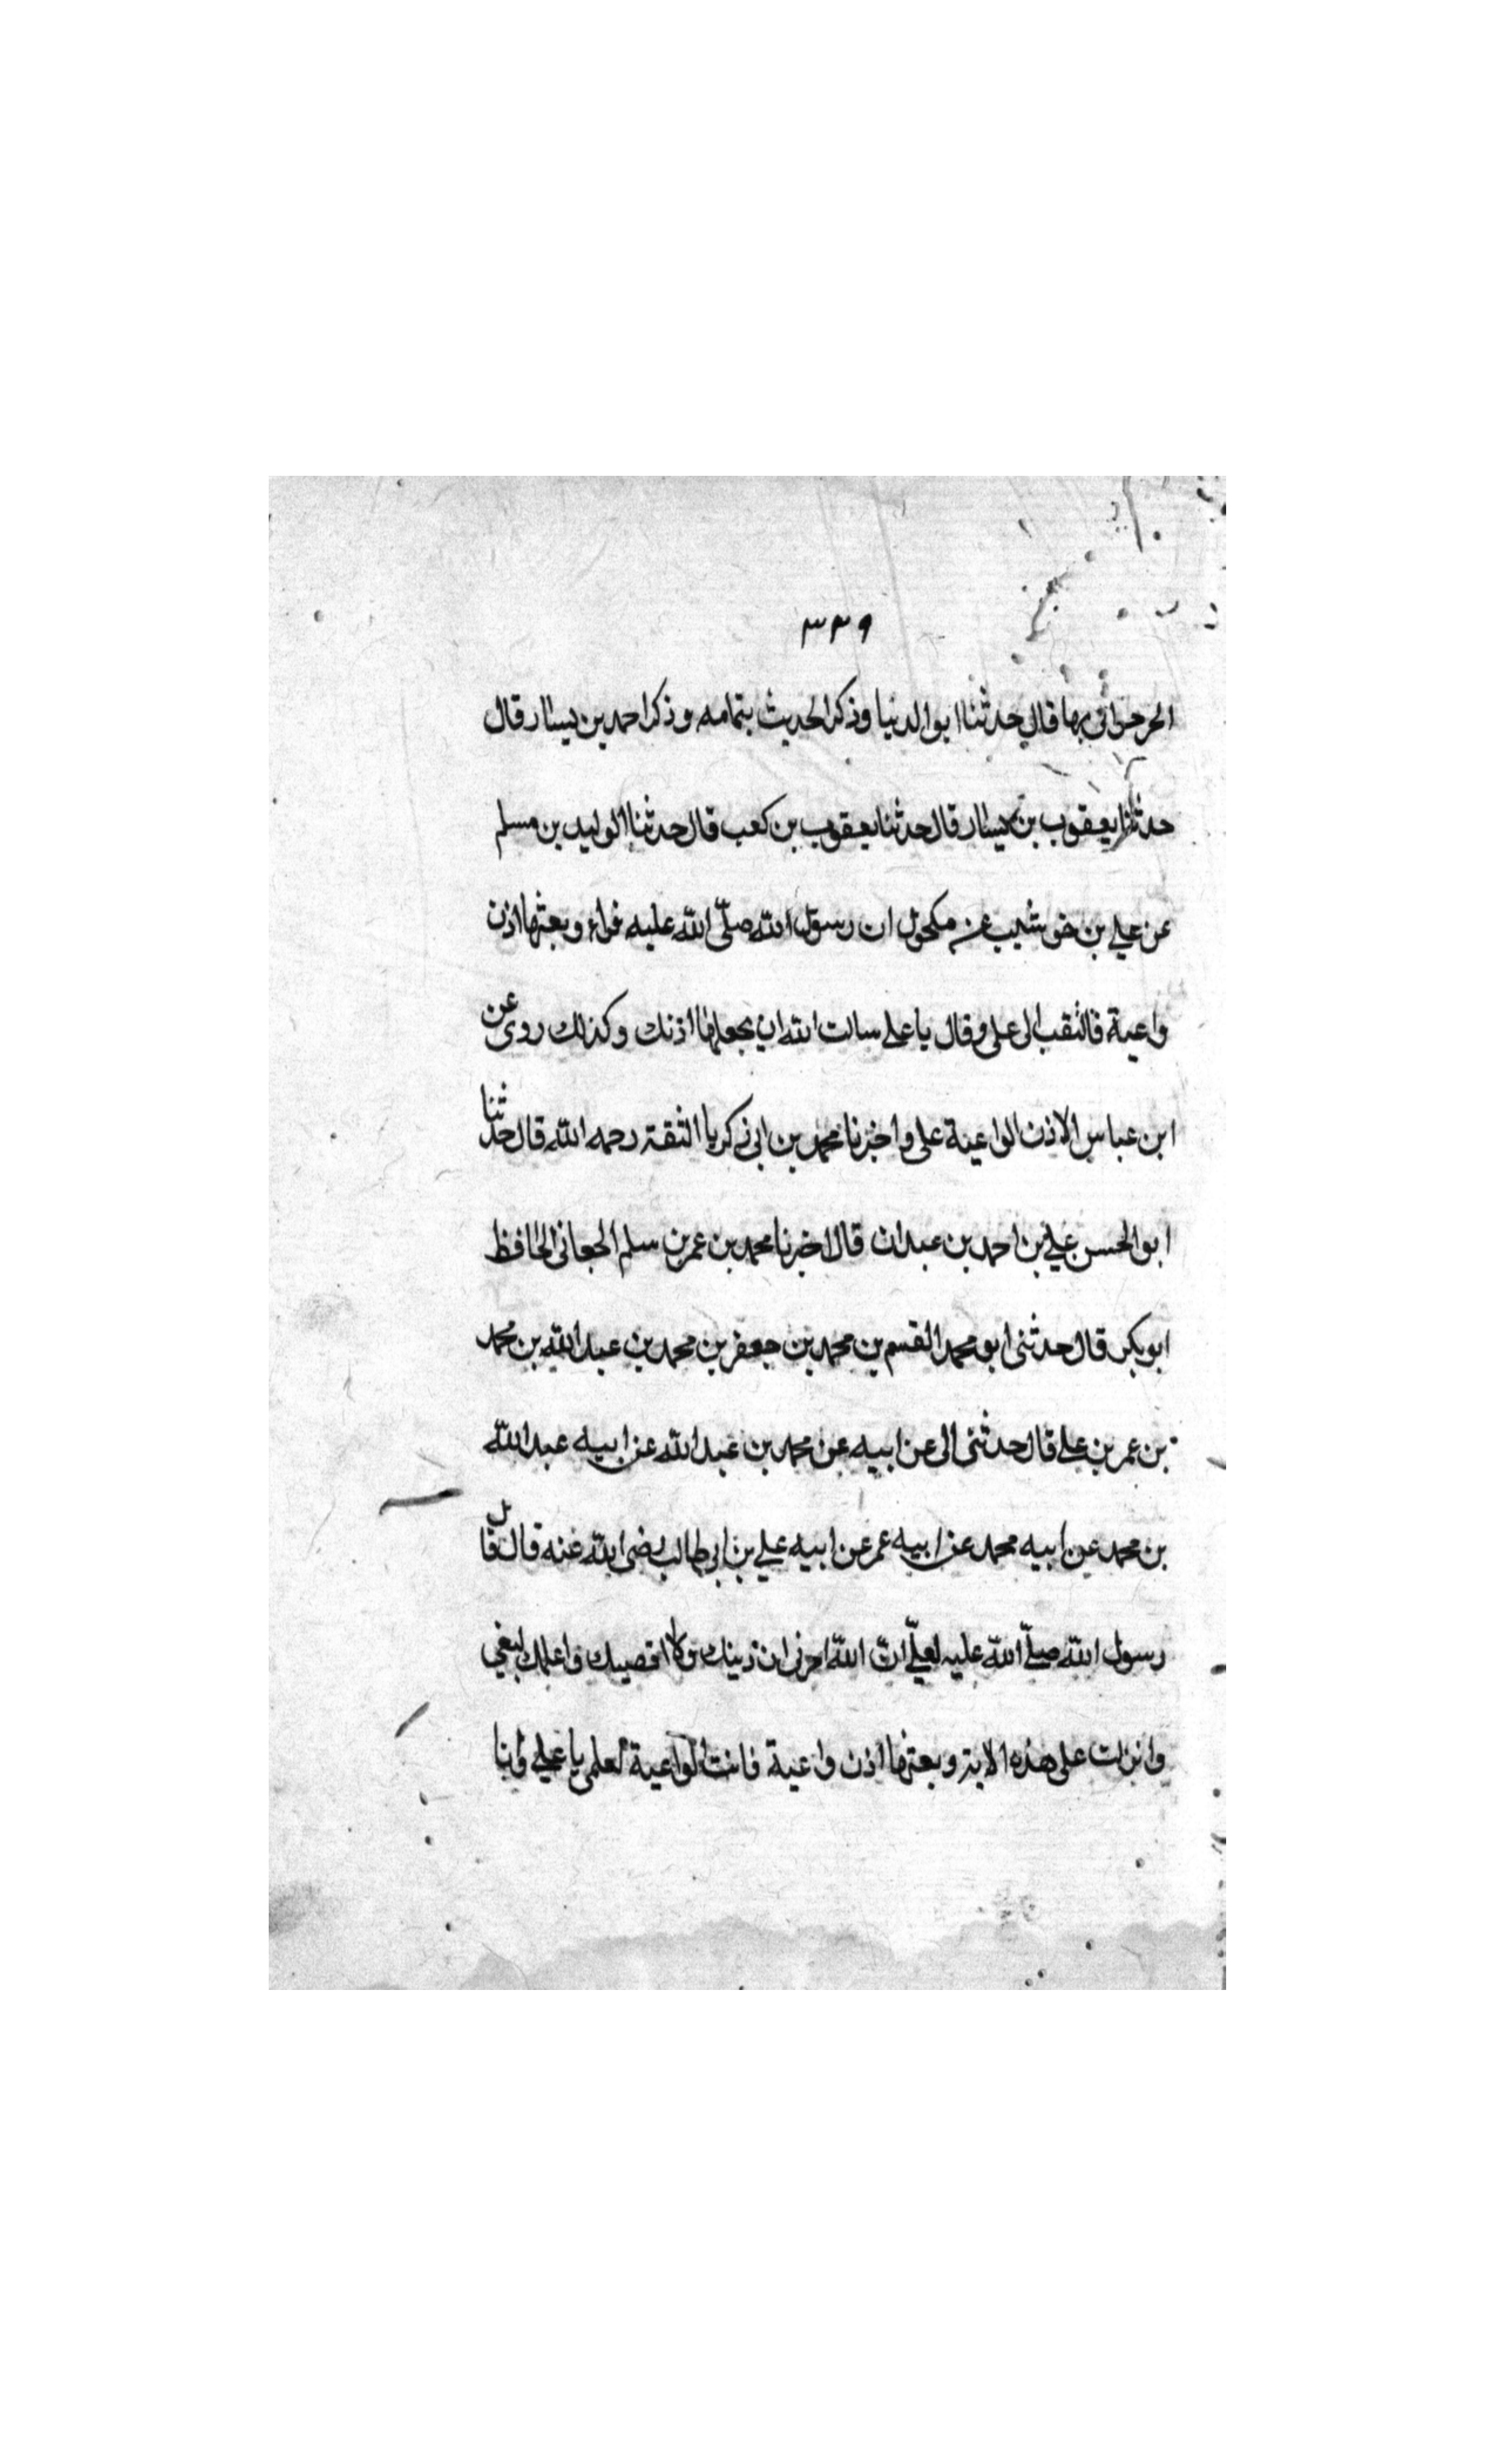 ٣٣٩
الحرحرائى بها قال حدثنا ابو الدنيا وذكر الحديث بتمامه وذكر احمد بن يسار قال
حدثنا يعقوب بن يسار قال حدثنا يعقوب بن كعب قال حدثنا الوليد بن مسلم
عن على بن حوشب عن مكحول ان رسول الله صلّى الله عليه قراء وبعتها اذن
واعية فالتقب الى على وقال يا على سالت الله ان يجعلها اذنك وكذلك روى عن
ابن عباس الاذن الواعية على واخبرنا محمد بن ابى زكريا الثقة رحمه الله قال حدثنا
ابو الحسن على بن احمد بن عبدان قال اخبرنا محمد بن عمر بن سلم الجعانى الحافظ
ابو بكر قال حدثنى ابو محمد القسم بن محمد بن جعفر بن محمد بن عبد الله بن محمد
بن عمر بن على قال حدثنى الى عن ابيه عن محمد بن عبد الله عن ابيه عبد الله
بن محمد عن ابيه محمد عن ابيه عمر عن ابيه على بن ابى طالب رضى الله عنه قال قال
رسول الله صلّى الله عليه لعلىّ انّ الله امرنى ان ادنيك ولا اقصيك واعلمك لتعى
وانزلت على هذه الاية وبعتها اذن واعية فانت الواعية لعلمى يا على وانا